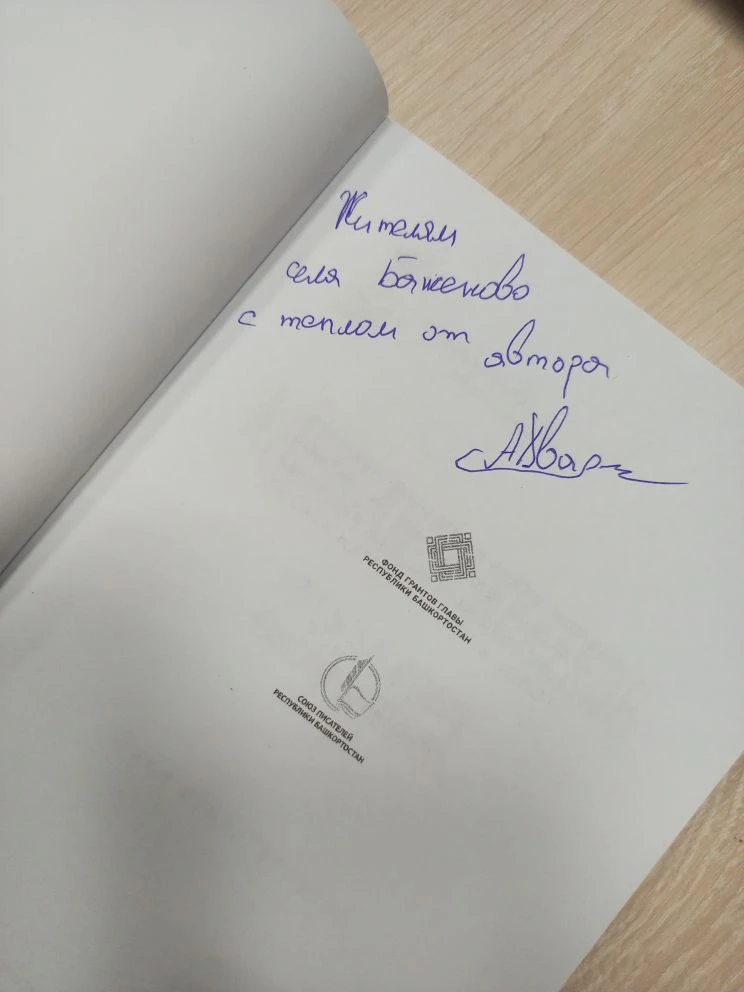 Жителям
села Баженово
с теплом от автора
ФОНД ГРАНТОВ ГЛАВЫ
РЕСПУБЛИКИ БАШКОРТОСТАН
СОЮЗ ПИСАТЕЛЕЙ
РЕСПУБЛИКИ БАШКОРТОСТАН